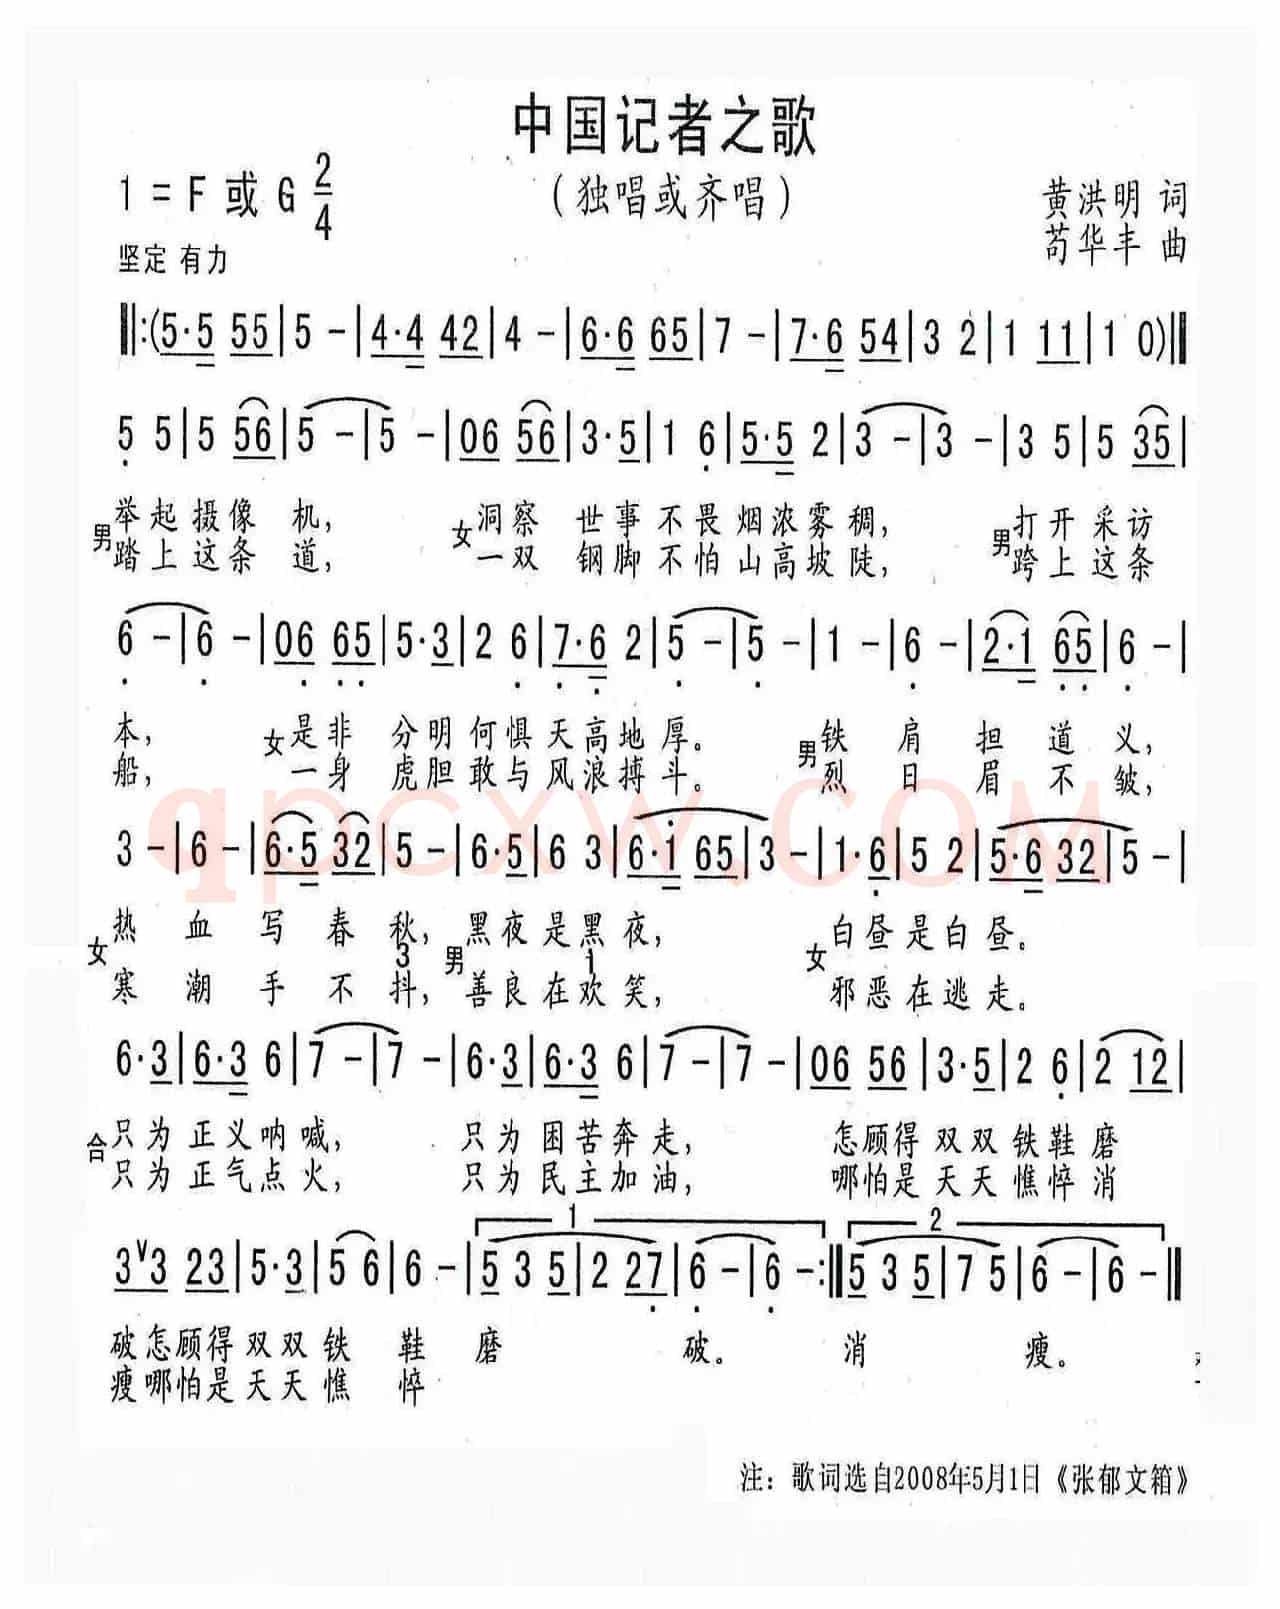 中国记者之歌
1 = F 或 G 2/4
（独唱或齐唱）
黄洪明 词
坚定 有力
苟华丰 曲
‖:(5·5 55|5 -|4·4 42|4 -|6·6 65|7 -|7·6 54|3 2|1 11|1 0)‖
5 5|5 56|5 -|5 -|06 56|3·5|1 6|5·5 2|3 -|3 -|3 5|5 35|
男 举起摄像 机， 女 洞察 世事不畏烟浓雾稠， 男 打开采访
踏上这条 道， 一双 钢脚不怕山高坡陡， 跨上这条
6 -|6 -|06 65|5·3|2 6|7·6 2|5 -|5 -|1 -|6 -|2·1 65|6 -|
本， 女 是非 分明何惧天高地厚。 男 铁 肩 担 道 义，
船， 一身 虎胆敢与风浪搏斗。 烈 日 眉 不 皱，
qpcxw.com
3 -|6 -|6·5 32|5 -|6·5|6 3|6·i 65|3 -|1·6|5 2|5·6 32|5 -|
女 热 血 写 春 秋，男 黑夜是黑夜， 女 白昼是白昼。
3 1
寒 潮 手 不 抖，善良在欢笑， 邪恶在逃走。
6·3|6·3 6|7 -|7 -|6·3|6·3 6|7 -|7 -|06 56|3·5|2 6|2 12|
合 只为 正义呐喊， 只为 困苦奔走， 怎顾得 双双铁鞋磨
只为 正气点火， 只为 民主加油， 哪怕是 天天憔悴消
1 2
3∨3 23|5·3|5 6|6 -|5 3 5|2 27|6 -|6 -:‖5 3 5|7 5|6 -|6 -‖
破怎顾得 双双铁 鞋 磨 破。 消 瘦。
瘦哪怕是 天天憔 悴
注：歌词选自2008年5月1日《张郁文箱》